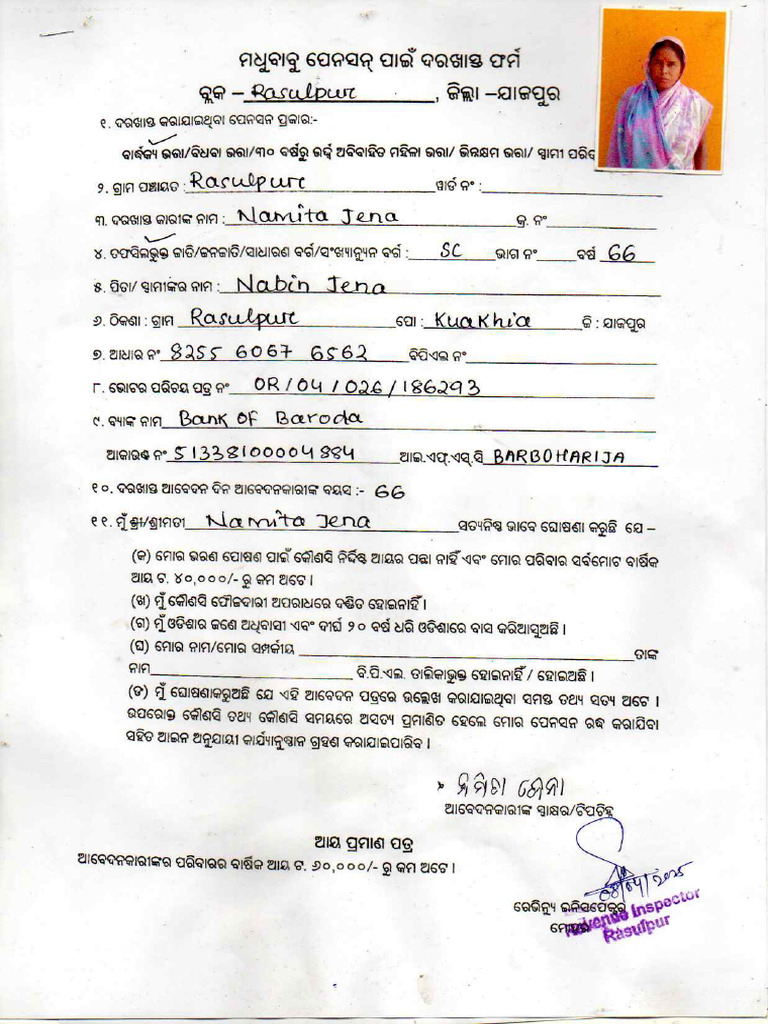 ମଧୁବାବୁ ପେନସନ୍ ପାଇଁ ଦରଖାସ୍ତ ଫର୍ମ
ବ୍ଲକ – Rasulpur , ଜିଲ୍ଲା –ଯାଜପୁର
୧. ଦରଖାସ୍ତ କରାଯାଇଥିବା ପେନସନ ପ୍ରକାର:-
ବାର୍ଦ୍ଧକ୍ୟ ଭତ୍ତା/ବିଧବା ଭତ୍ତା/୩୦ ବର୍ଷରୁ ଉର୍ଦ୍ଧ୍ୱ ଅବିବାହିତ ମହିଳା ଭତ୍ତା/ ଭିନ୍ନକ୍ଷମ ଭତ୍ତା/ ସ୍ୱାମୀ
୨. ଗ୍ରାମ ପଞ୍ଚାୟତ : Rasulpur ୱାର୍ଡ ନଂ :
୩. ଦରଖାସ୍ତ କାରୀଙ୍କ ନାମ : Namita Jena କ୍ର. ନଂ
୪. ତଫସିଲଭୁକ୍ତ ଜାତି/ଜନଜାତି/ସାଧାରଣ ବର୍ଗ/ସଂଖ୍ୟାନ୍ୟୁନ ବର୍ଗ : SC ଭାଗ ନଂ ବର୍ଷ 66
୫. ପିତା/ ସ୍ୱାମୀଙ୍କର ନାମ : Nabin Jena
୬. ଠିକଣା : ଗ୍ରାମ Rasulpur ପୋ : Kuakhia ଜି : ଯାଜପୁର
୭. ଆଧାର ନଂ 8255 6067 6562 ବିପିଏଲ ନଂ
୮. ଭୋଟର ପରିଚୟ ପତ୍ର ନଂ OR/04/026/186293
୯. ବ୍ୟାଙ୍କ ନାମ Bank OF Baroda
ଆକାଉଣ୍ଟ ନଂ 51338100004884 ଆଇ.ଏଫ୍.ଏସ୍.ସି BARBOHARIJA
୧୦. ଦରଖାସ୍ତ ଆବେଦନ ଦିନ ଆବେଦନକାରୀଙ୍କ ବୟସ :- 66
୧୧. ମୁଁ ଶ୍ରୀ/ଶ୍ରୀମତୀ Namita Jena ସତ୍ୟନିଷ୍ଠ ଭାବେ ଘୋଷଣା କରୁଛି ଯେ –
(କ) ମୋର ଭରଣ ପୋଷଣ ପାଇଁ କୌଣସି ନିର୍ଦ୍ଦିଷ୍ଟ ଆୟର ପନ୍ଥା ନାହିଁ ଏବଂ ମୋର ପରିବାର ସର୍ବମୋଟ ବାର୍ଷିକ
ଆୟ ଟ. ୪୦,୦୦୦/- ରୁ କମ ଅଟେ ।
(ଖ) ମୁଁ କୌଣସି ଫୌଜଦାରୀ ଅପରାଧରେ ଦଣ୍ଡିତ ହୋଇନାହିଁ ।
(ଗ) ମୁଁ ଓଡିଶାର ଜଣେ ଅଧିବାସୀ ଏବଂ ଦୀର୍ଘ ୨୦ ବର୍ଷ ଧରି ଓଡିଶାରେ ବାସ କରିଆସୁଅଛି ।
(ଘ) ମୋର ନାମ/ମୋର ସମ୍ପର୍କୀୟ ତାଙ୍କ
ନାମ ବି.ପି.ଏଲ. ତାଲିକାଭୁକ୍ତ ହୋଇନାହିଁ / ହୋଇଅଛି ।
(ଙ) ମୁଁ ଘୋଷଣାକରୁଅଛି ଯେ ଏହି ଆବେଦନ ପତ୍ରରେ ଉଲ୍ଲେଖ କରାଯାଇଥିବା ସମସ୍ତ ତଥ୍ୟ ସତ୍ୟ ଅଟେ ।
ଉପରୋକ୍ତ କୌଣସି ତଥ୍ୟ କୌଣସି ସମୟରେ ଅସତ୍ୟ ପ୍ରମାଣିତ ହେଲେ ମୋର ପେନସନ ରଦ୍ଧ କରାଯିବା
ସହିତ ଆଇନ ଅନୁଯାୟୀ କାର୍ଯ୍ୟାନୁଷ୍ଠାନ ଗ୍ରହଣ କରାଯାଇପାରିବ ।
ନମିତା ଜେନା
ଆବେଦନକାରୀଙ୍କ ସ୍ୱାକ୍ଷର/ଟିପଚିହ୍ନ
ଆୟ ପ୍ରମାଣ ପତ୍ର
ଆବେଦନକାରୀଙ୍କର ପରିବାରର ବାର୍ଷିକ ଆୟ ଟ. ୬୦,୦୦୦/- ରୁ କମ ଅଟେ ।
ରେଭିନ୍ୟୁ ଇନିସପେକ୍ଟର
Revenue Inspector
Rasulpur